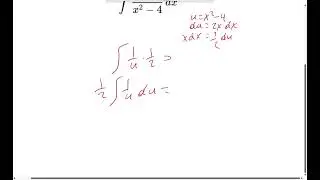 ∫ ‾‾‾/(x² − 4) dx
u = x² − 4
du = 2x dx
x dx = 1/2 du
∫ 1/u · 1/2 =
1/2 ∫ 1/u du =